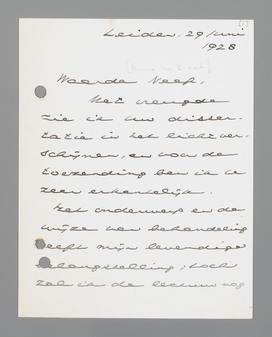 Leiden, 29 Juni
1928
Waarde Neef,
Met vreugde
zie ik Uw disser-
tatie in het licht ver-
schijnen, en voor de
toezending ben ik U
zeer erkentelijk.
Het onderwerp en de
wijze van behandeling
heeft mijn levendige
belangstelling; toch
zal ik de lectuur nog